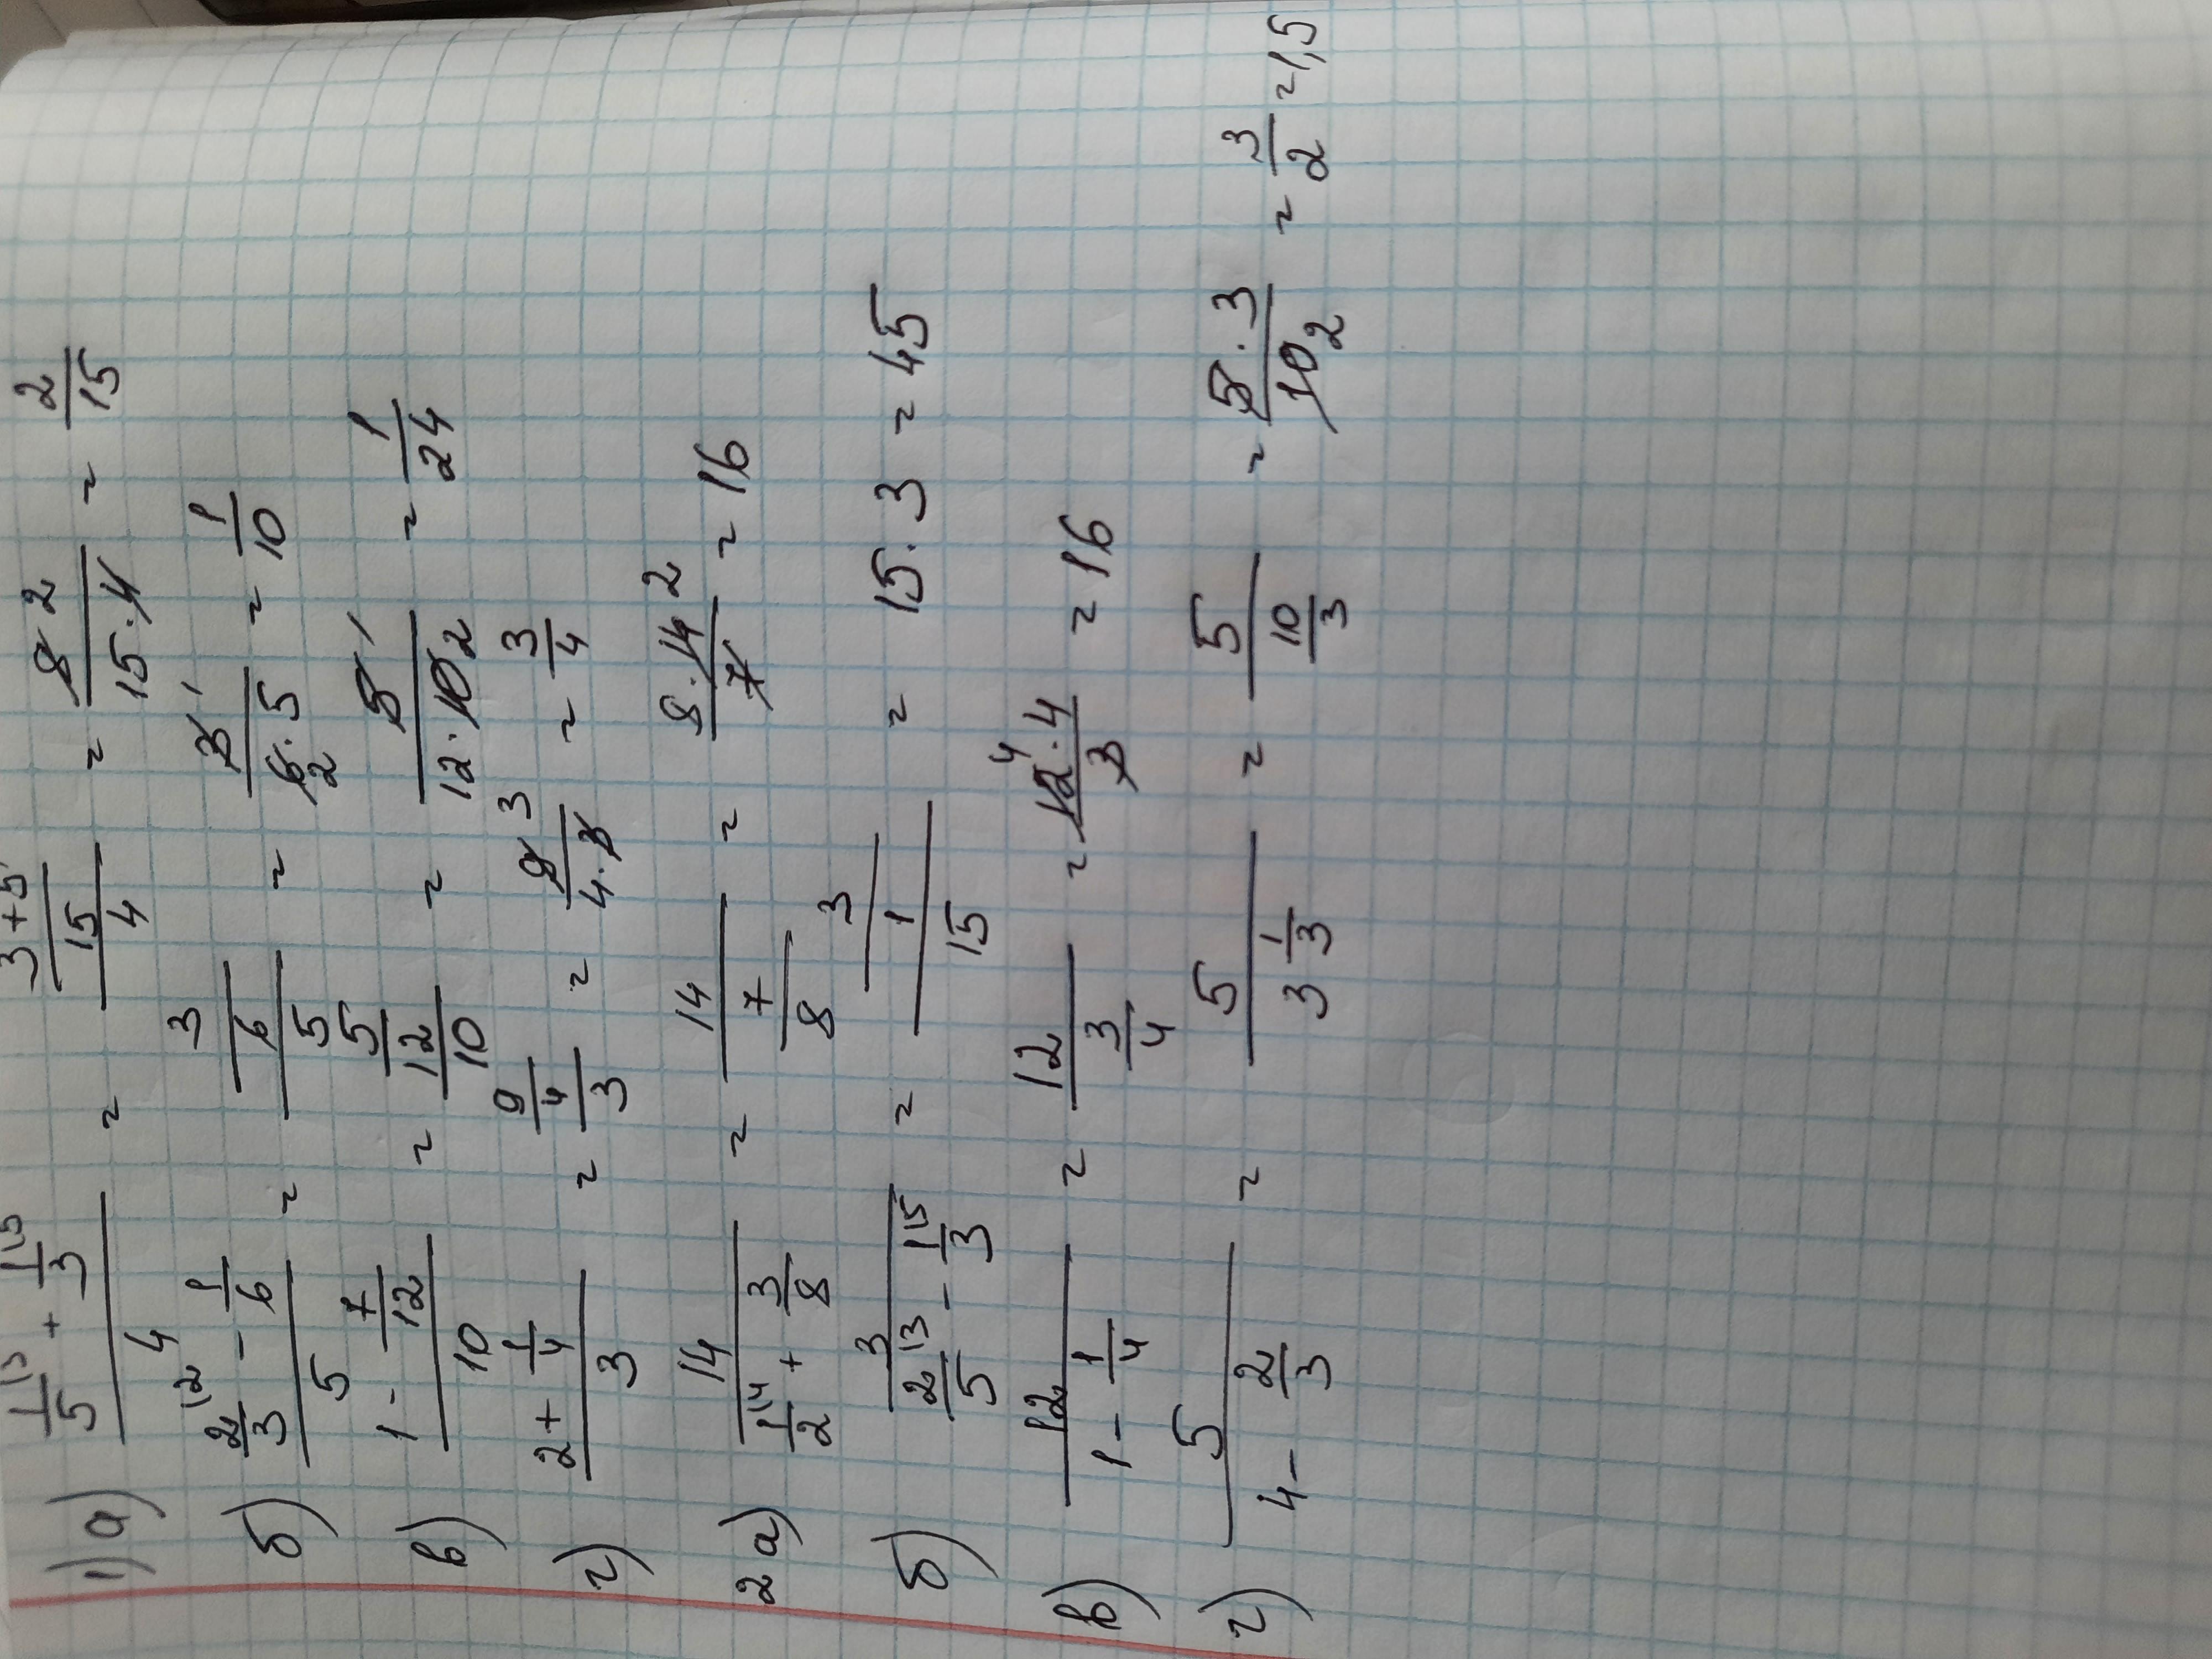 1) а) (1/5 |3 + 1/3 |5)/4 = ((3+5)/15)/4 = (8 2)/(15·4) = 2/15
б) (2/3 |2 - 1/6)/5 = (3/6)/5 = (3 1)/(6 2·5) = 1/10
в) (1 - 7/12)/10 = (5/12)/10 = (5 1)/(12·10 2) = 1/24
г) (2 + 1/4)/3 = (9/4)/3 = (9 3)/(4·3) = 3/4
2 а) 14/(1/2 |4 + 3/8) = 14/(7/8) = (8·14 2)/7 = 16
б) 3/(2/5 |3 - 1/3 |5) = 3/(1/15) = 15·3 = 45
в) 12/(1 - 1/4) = 12/(3/4) = (12 4·4)/3 = 16
г) 5/(4 - 2/3) = 5/(3 1/3) = 5/(10/3) = (5·3)/(10 2) = 3/2 = 1,5